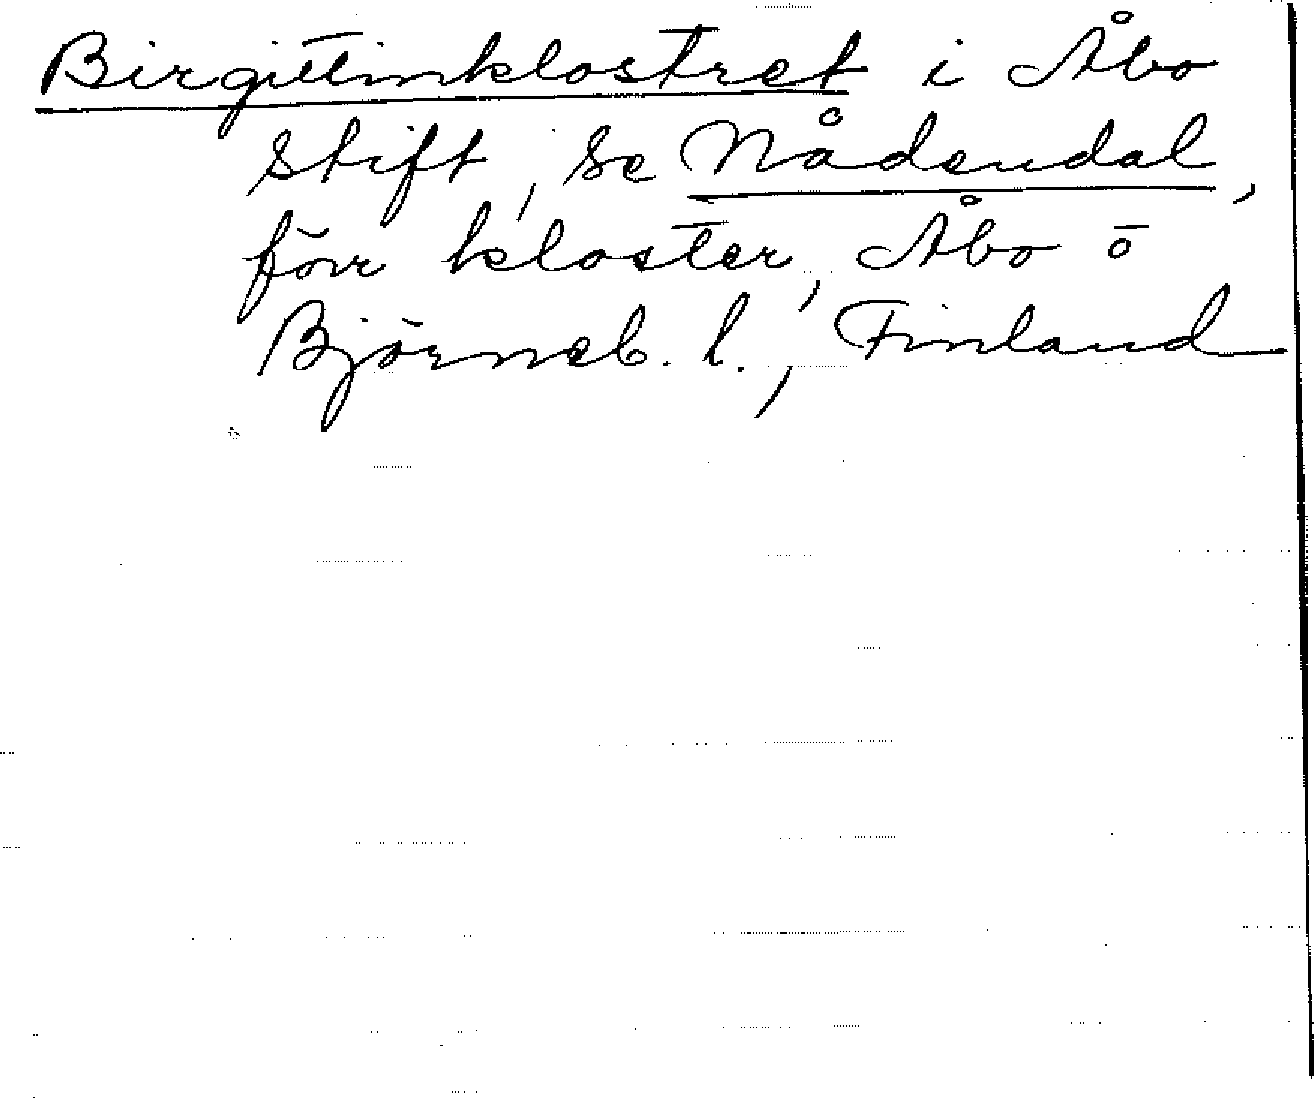 Birgittinklostret i Åbo
stift, se Nådendal,
förr kloster, Åbo o
Björneb. l., Finland